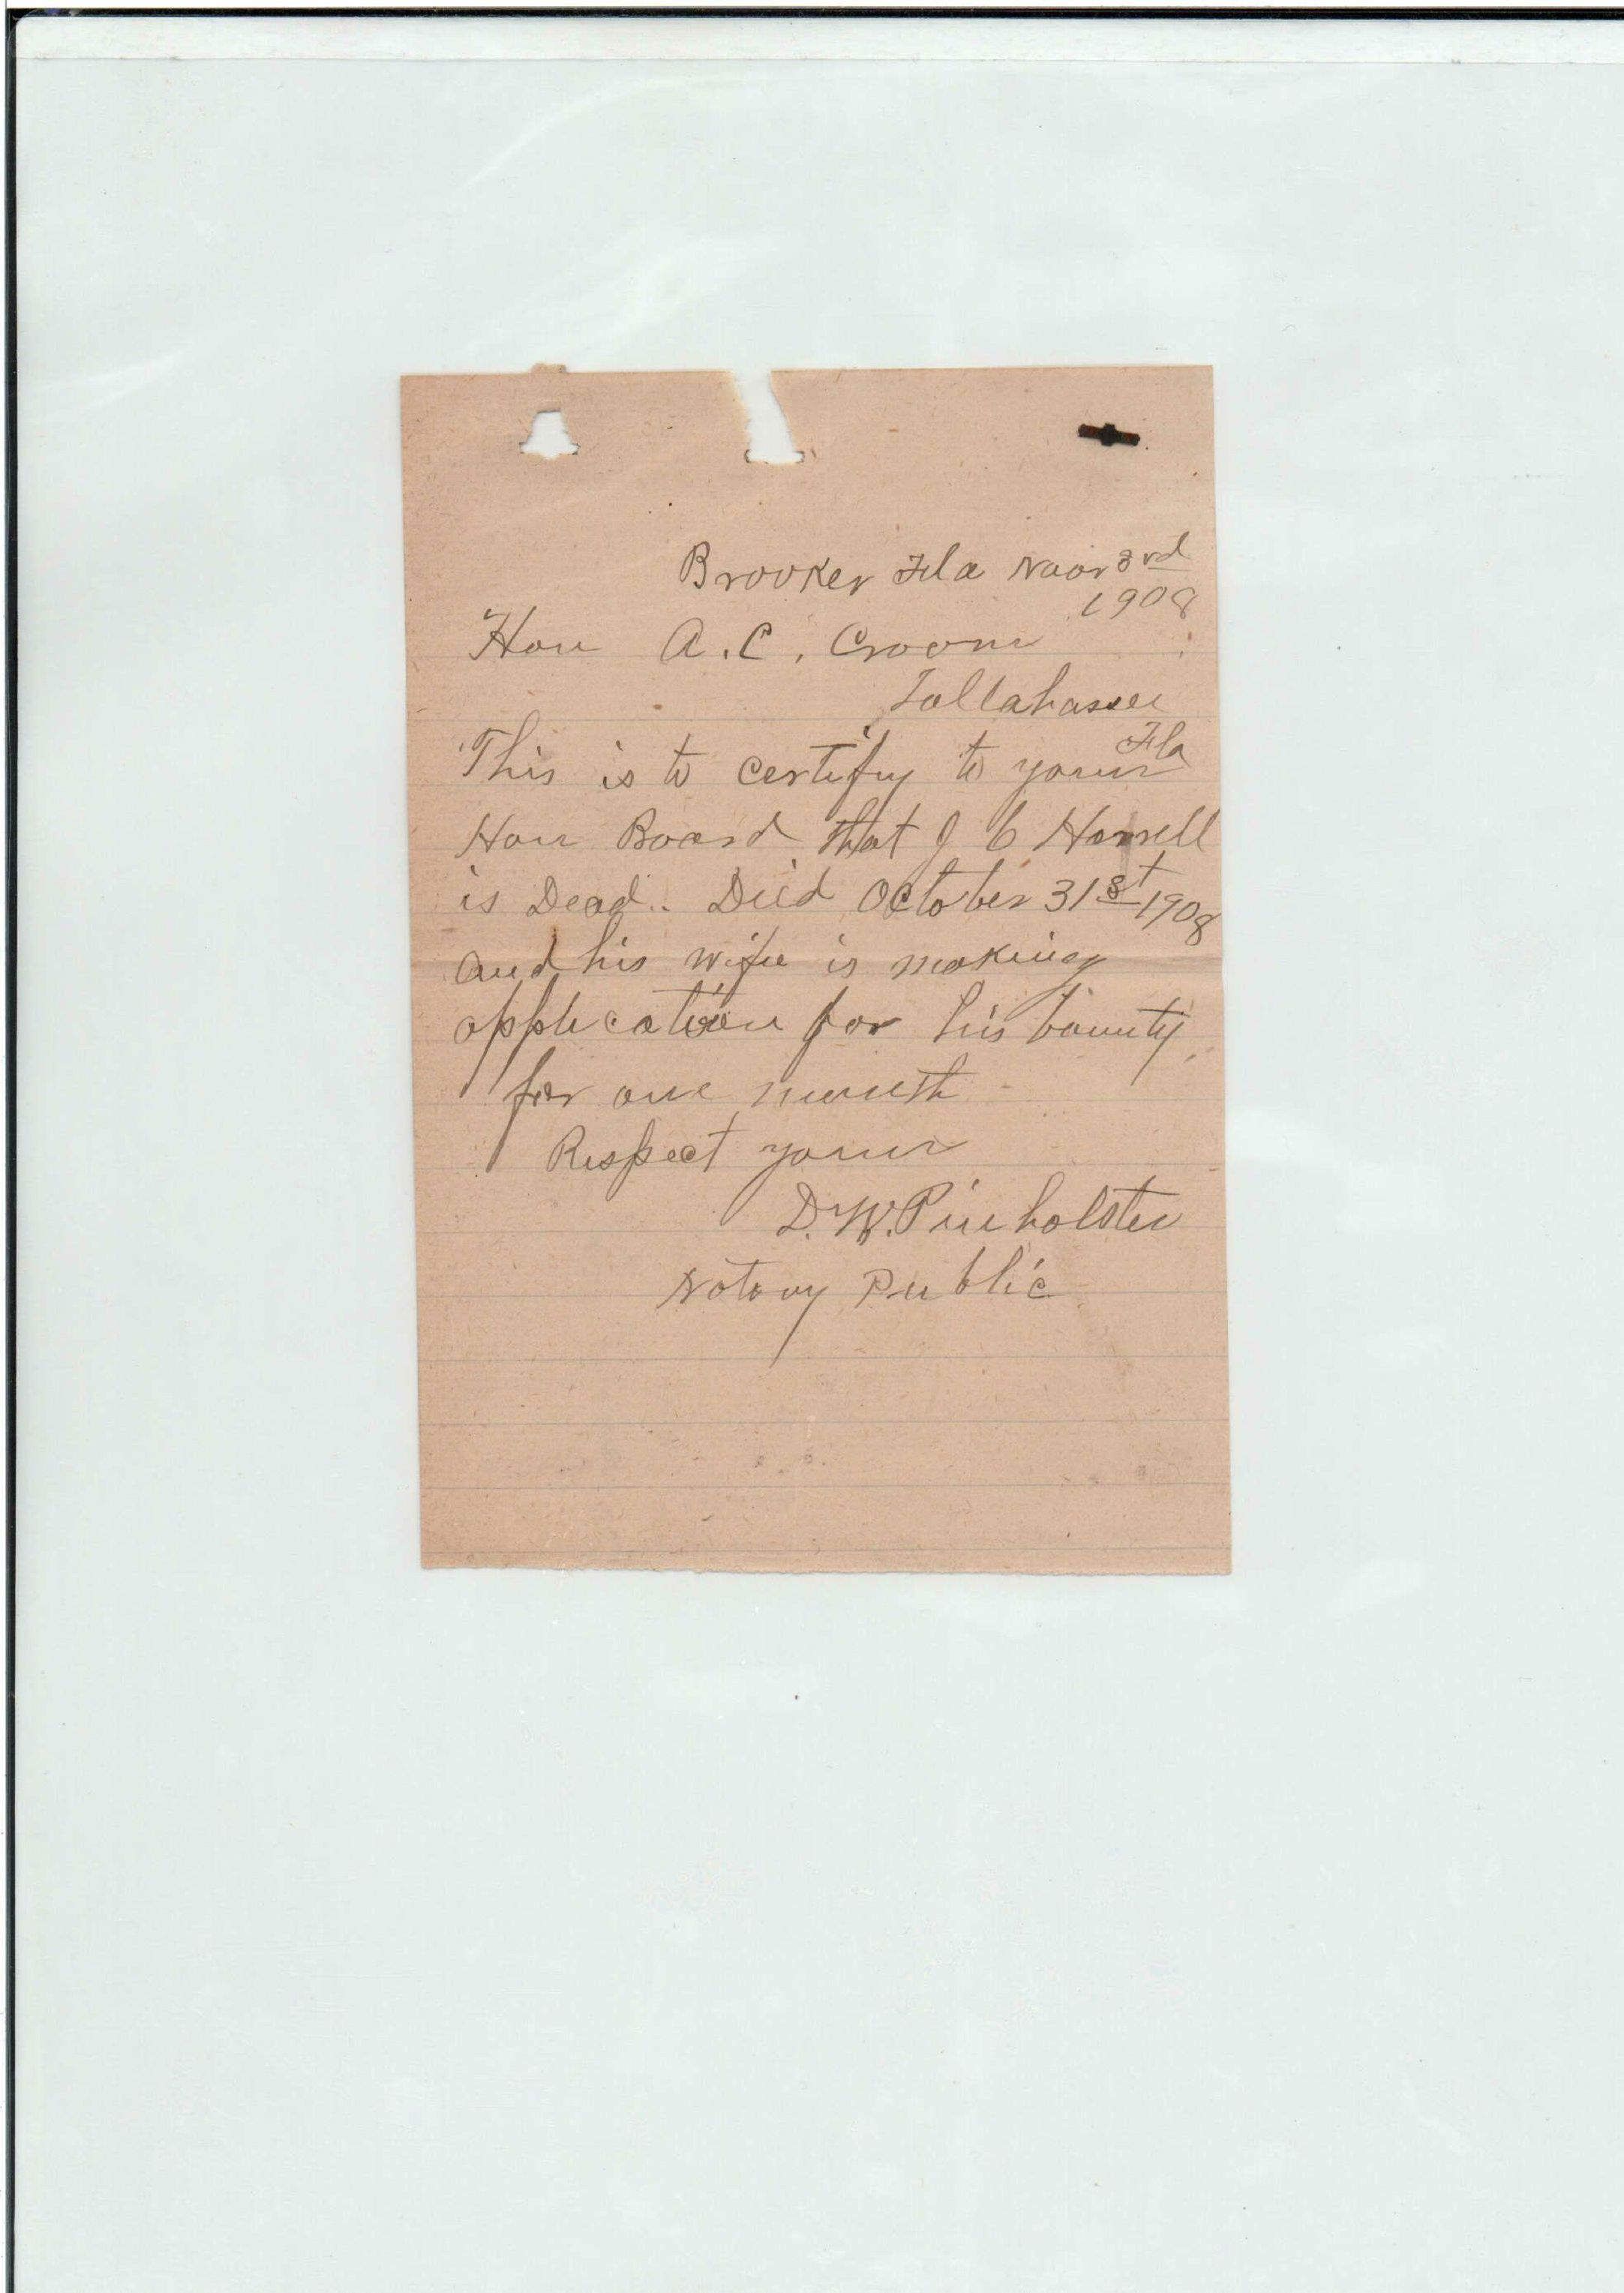 Brooker Fla Nov 3rd
1908
Hon A. C. Croom
Tallahassee
Fla
This is to certify to your
Hon Board that J C Harrell
is Dead. Died October 31st 1908
and his wife is making
application for his bounty
for one month
Respect your
D. W. Pinholster
Notary Public